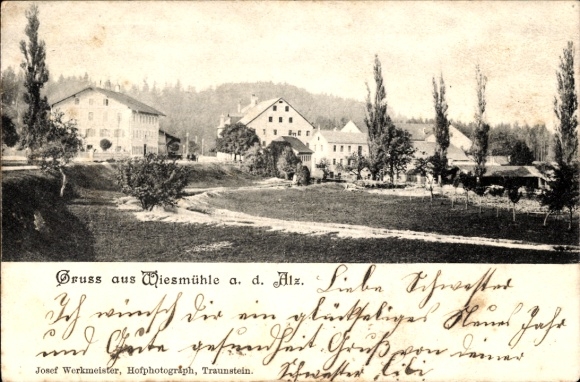 Gruss aus Wiesmühle a. d. Alz.
Liebe Schwester
Ich wünsch Dir ein glückseliges Neues Jahr
und Gute gesundheit Gruß von deiner
Schwester
Josef Werkmeister, Hofphotograph, Traunstein.